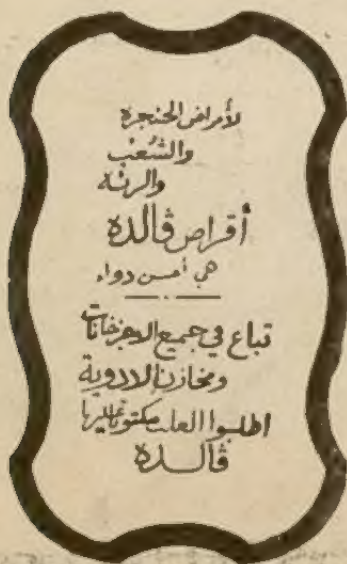 لأمراض الحنجرة
والشُعَب
والرئة
أقراص ڤالدة
هي أحسن دواء
تباع في جميع الاجزخانات
ومخازن الادوية
اطلبوا العلب مكتوباً عليها
ڤالدة